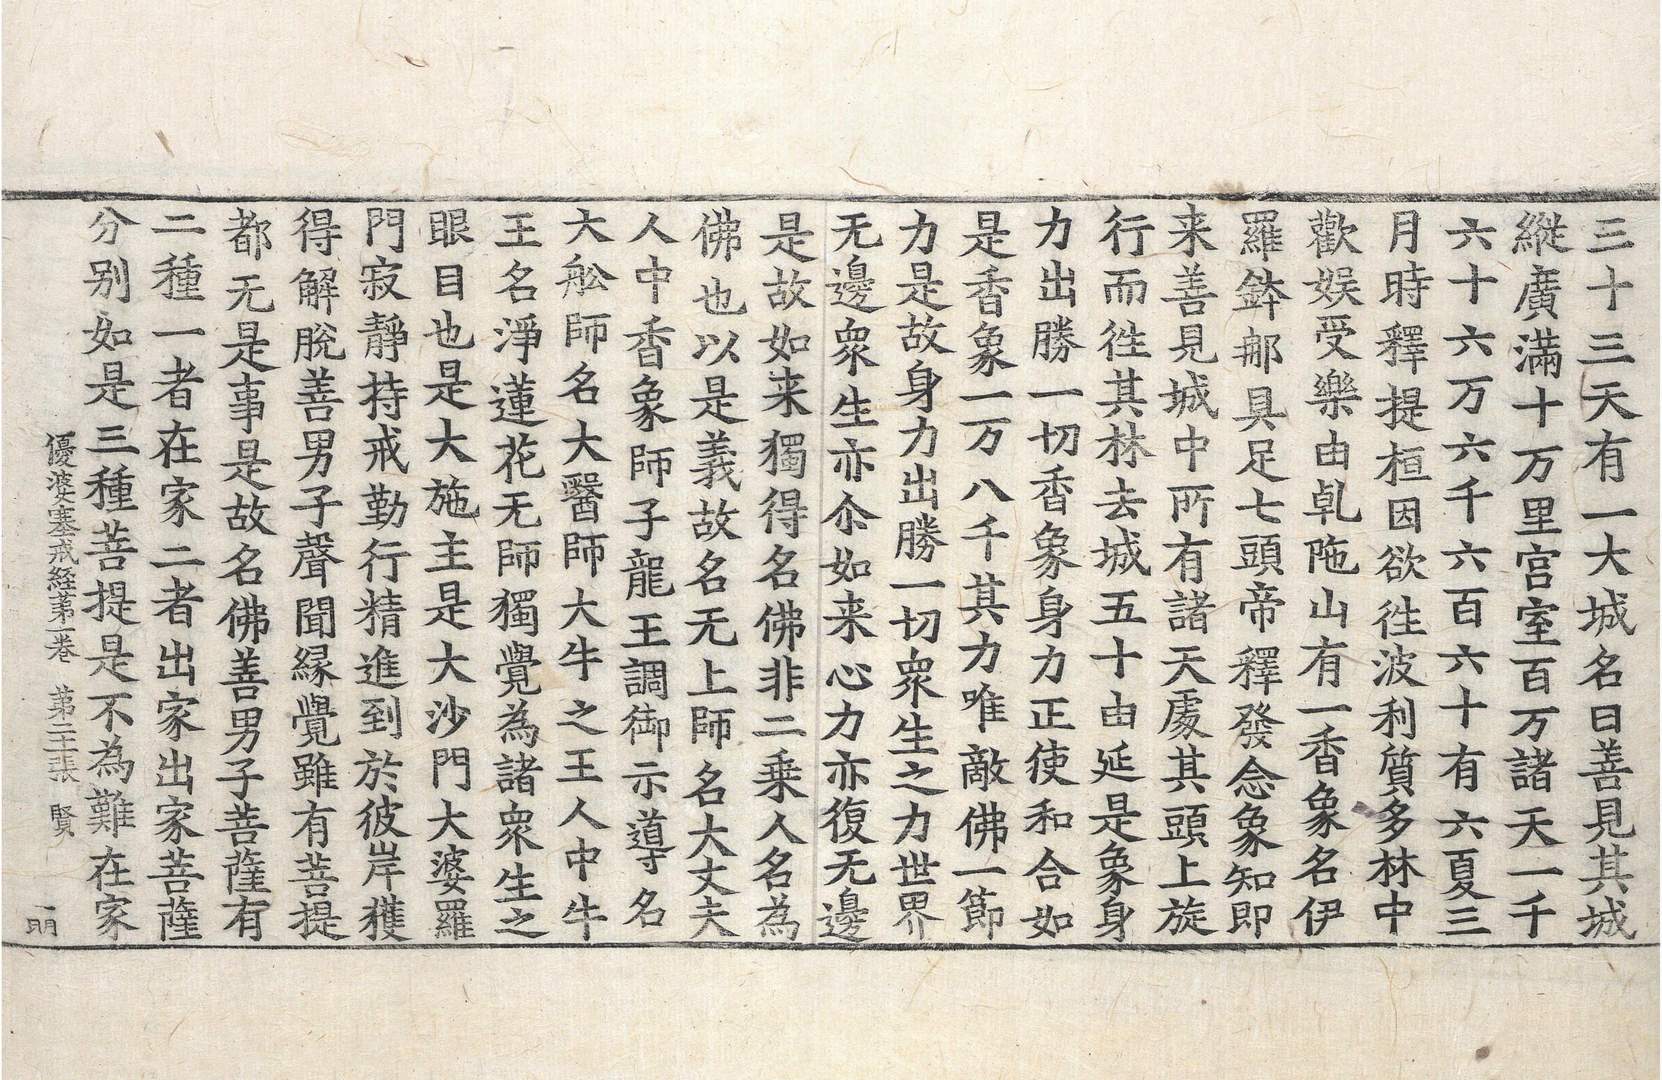 三十三天有一大城名曰善見其城
縱廣滿十万里宮室百万諸天一千
六十六万六千六百六十有六夏三
月時釋提桓因欲徃波利質多林中
歡娱受樂由乹陁山有一香象名伊
羅鉢那具足七頭帝釋發念象知即
来善見城中所有諸天處其頭上旋
行而徃其林去城五十由延是象身
力出勝一切香象身力正使和合如
是香象一万八千其力唯敵佛一節
力是故身力出勝一切衆生之力世界
无邊衆生亦尒如来心力亦復无邊
是故如来獨得名佛非二乗人名為
佛也以是義故名无上師名大丈夫
人中香象師子龍王調御示導名
大舩師名大醫師大牛之王人中牛
王名淨蓮花无師獨覺為諸衆生之
眼目也是大施主是大沙門大婆羅
門寂靜持戒勤行精進到於彼岸獲
得解脫善男子聲聞縁覺雖有菩提
都无是事是故名佛善男子菩薩有
二種一者在家二者出家出家菩薩
分别如是三種菩提是不為難在家
優婆塞戒経苐一卷　苐二十張　賢
一明